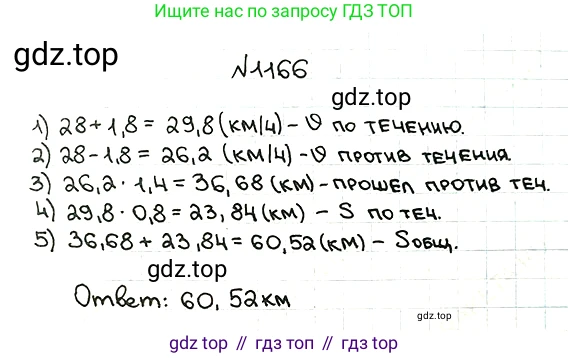 Ищите нас по запросу ГДЗ ТОП
gdz.top
№1166
gdz.top
1) 28+1,8 = 29,8 (км/ч) - υ по течению.
2) 28-1,8 = 26,2 (км/ч) - υ против течения.
3) 26,2 · 1,4 = 36,68 (км) - прошел против теч.
4) 29,8 · 0,8 = 23,84 (км) - S по теч.
5) 36,68 + 23,84 = 60,52 (км) - Sобщ.
gdz.top
Ответ: 60,52км
gdz top // гдз топ // gdz.top